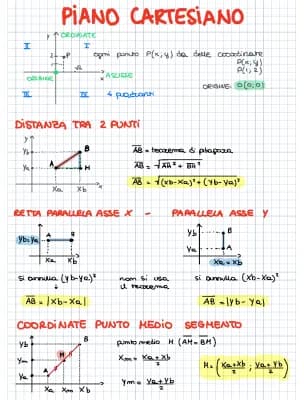 PIANO CARTESIANO
y ORDINATE
II I
ogni punto P(x;y) ha delle coordinate
P(x;y)
P(1;2)
2 P
ORIGINE
x
ASCISSE
ORIGINE: O(0;0)
III IV
4 quadranti
DISTANZA TRA 2 PUNTI
y
yb B
ya A H
xa xb x
AB = teorema di pitagora
AB = √AH² + BH²
AB = √(xb-xa)² + (yb-ya)²
RETTA PARALLELA ASSE X - PARALLELA ASSE Y
yb=ya A B
xa xb
yb B
ya A
xa = xb
si annulla (yb-ya)² non si usa il teorema si annulla (xb-xa)²
AB = |xb-xa| AB = |yb-ya|
COORDINATE PUNTO MEDIO SEGMENTO
yb B
ym M
ya A
xa xm xb
punto medio M (AM=BM)
xm = xa+xb / 2
ym = ya+yb / 2
M = (xa+xb / 2 ; ya+yb / 2)